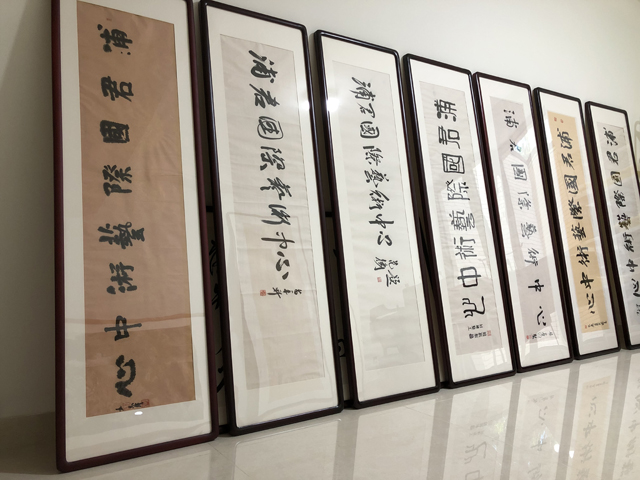 浦君國際藝術中心
浦君国际艺术中心
浦君國際藝術中心
浦君國際藝術中心
浦君國際藝術中心
浦君國際藝術中心
浦君國際藝術中心